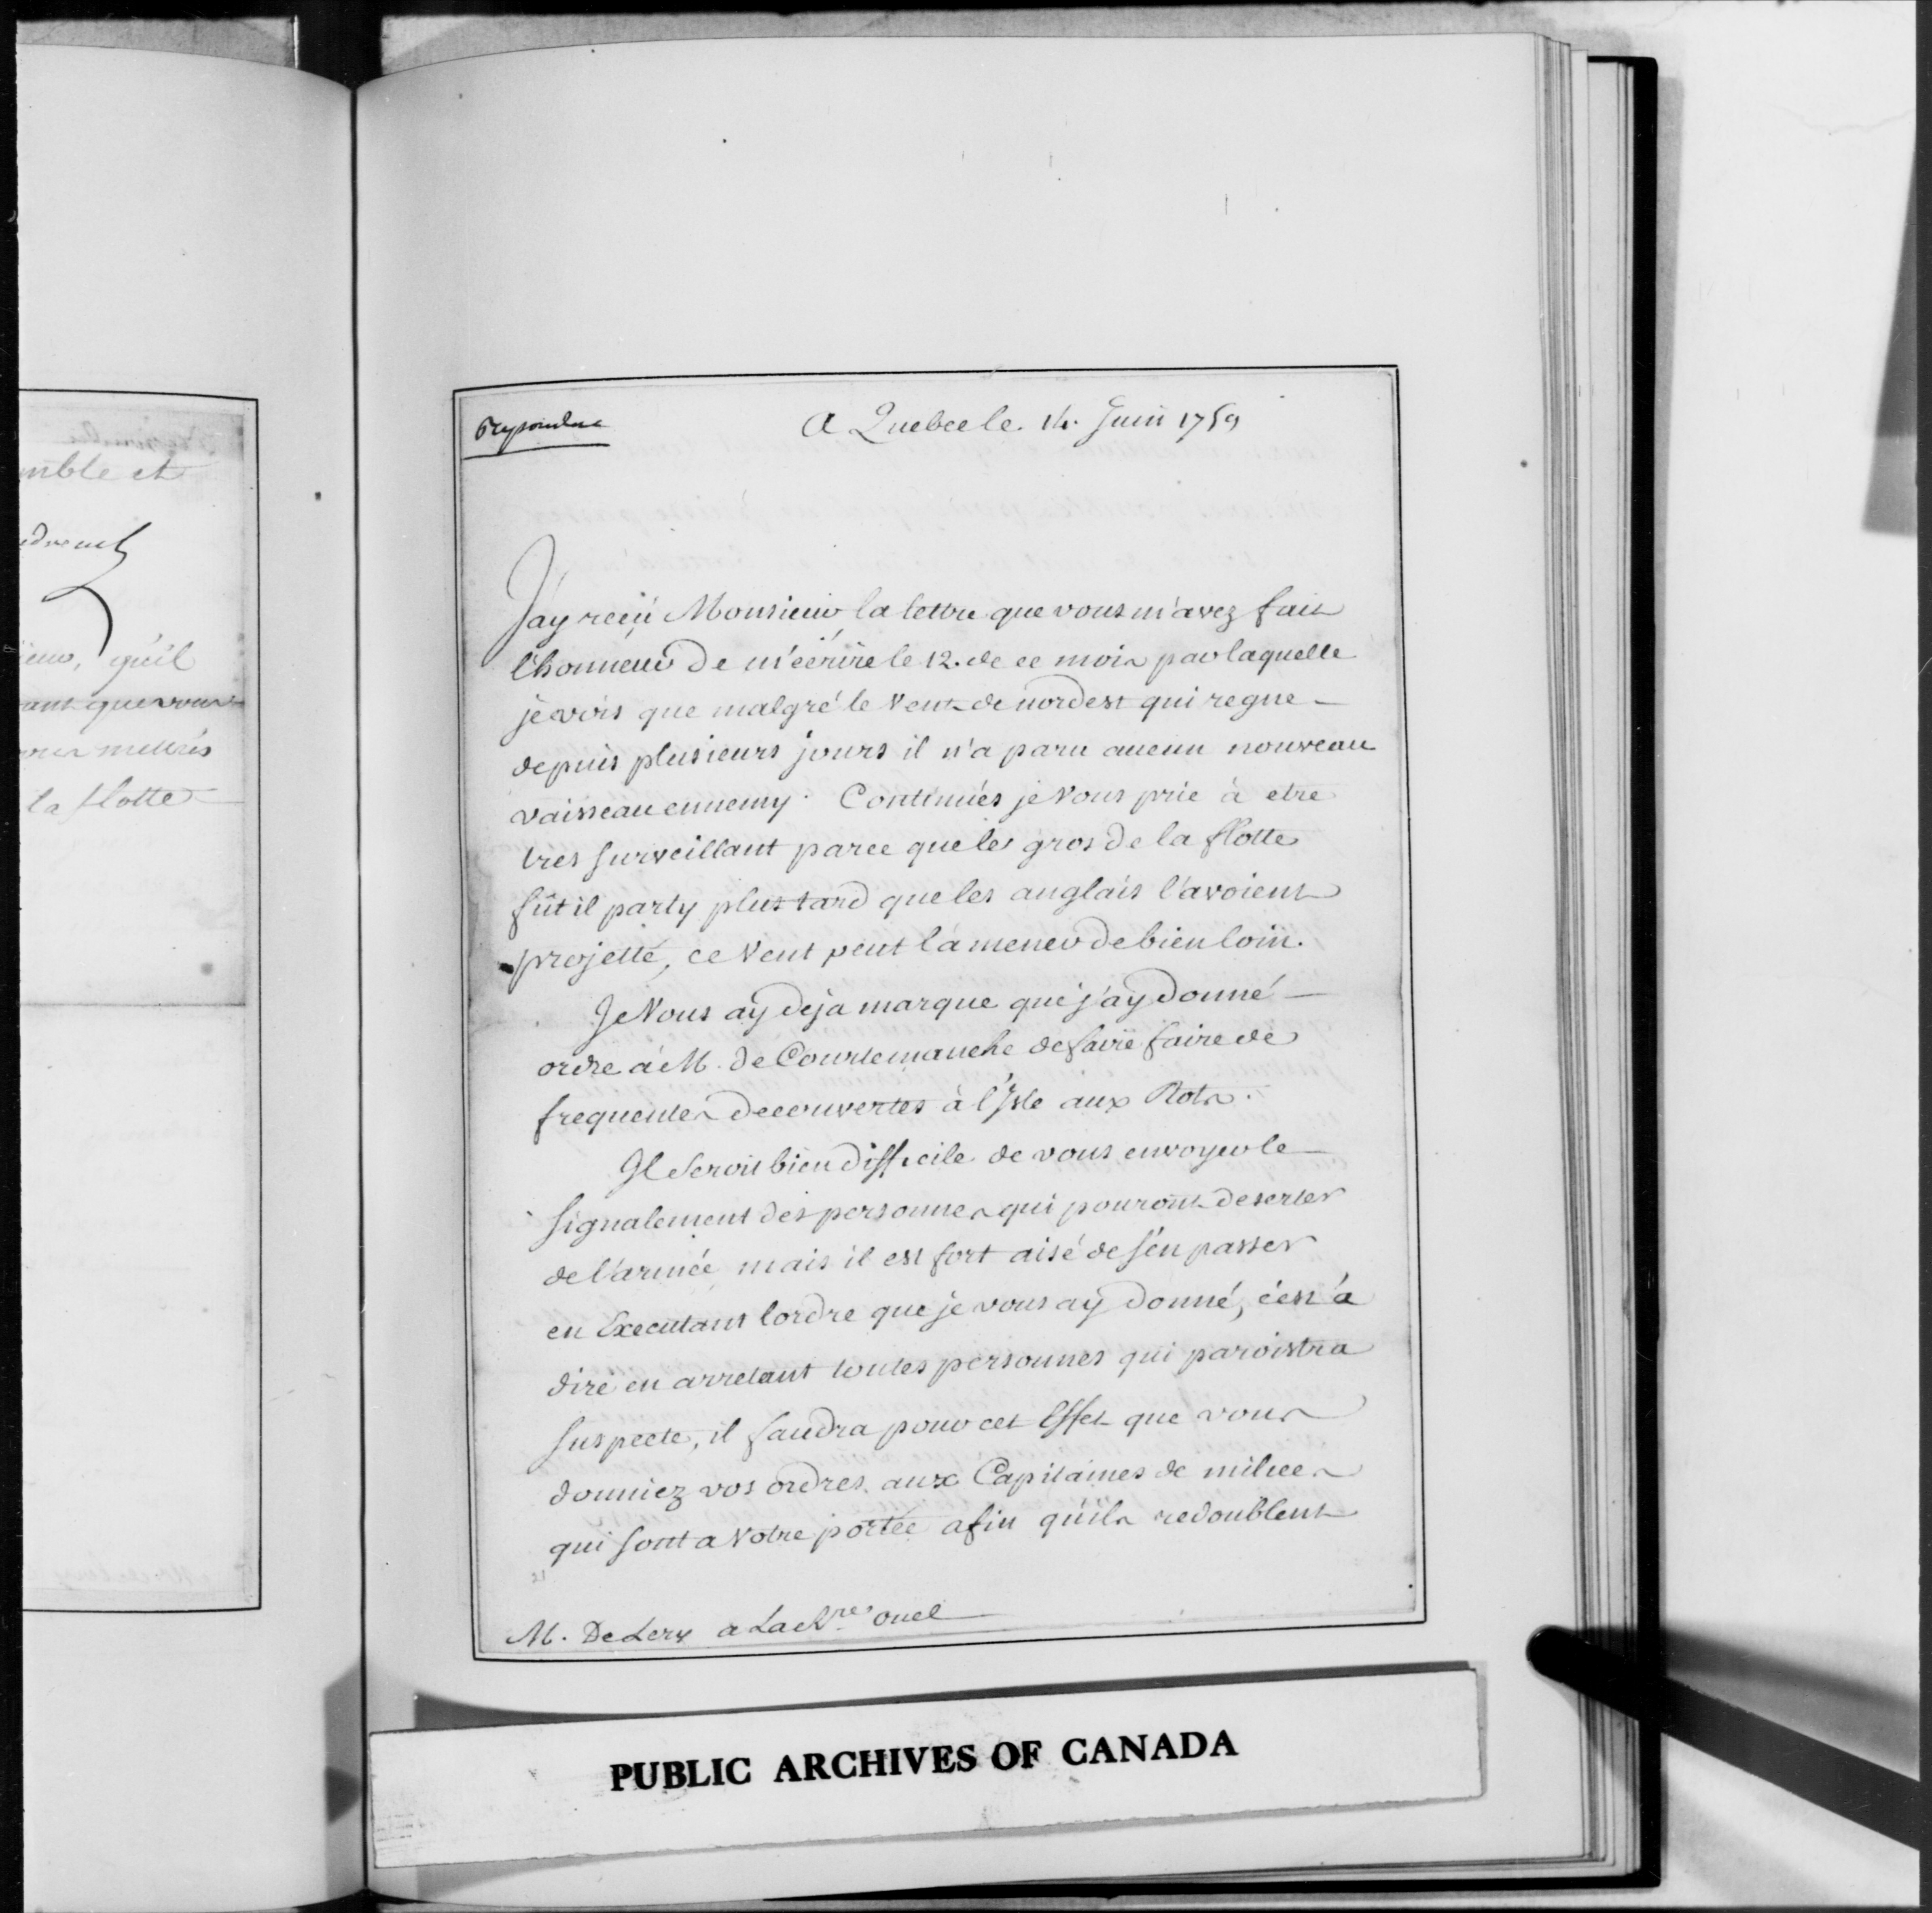 mble et
qu'il
ant que vous
mettrés
la flotte
A Quebec le. 14. Juin 1759
J'ay reçu Monsieur, la lettre que vous m'avez fait
l'honneur De m'écrire le 12. de ce mois par laquelle
je vois que malgré le Vent de nordest qui regne
depuis plusieurs jours il n'a paru aucun nouveau
vaisseau ennemy. Continués je Vous prie à etre
tres surveillant parce que le gros de la flotte
fût il party plus tard que les anglais l'avoient
projetté, ce Vent peut l'amener de bien loin.
Je Vous ay deja marque que j'ay donné
ordre à M. de Courtemanche de faire faire de
frequentes decouvertes à l'Isle aux Rots.
Il seroit bien difficile de vous envoyer le
signalement des personnes qui pouront deserter
de l'armée mais il est fort aisé de s'en passer
en Executant l'ordre que je vous ay donné, c'est à
dire en arretant toutes personnes qui paroistra
suspecte, il faudra pour cet Effet que vous
donniez vos ordres aux Capitaines de milices
qui sont a Votre portée afin qu'ils redoublent
21
M. De Lery a La Rre. ouel
PUBLIC ARCHIVES OF CANADA